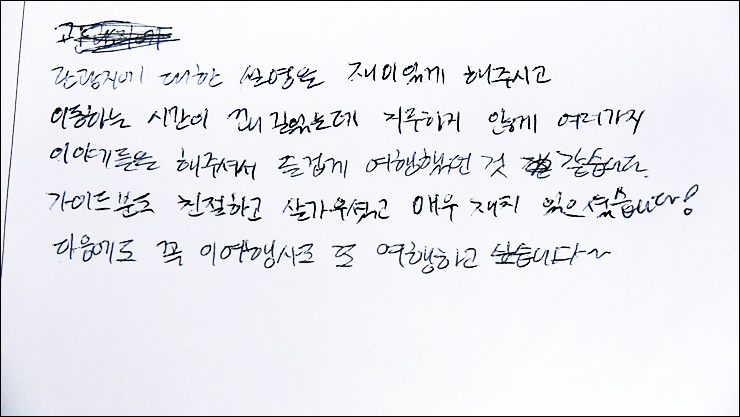 관광지에 대한 설명을 재미있게 해주시고
이동하는 시간이 꽤 길었는데 지루하지 않게 여러가지
이야기들을 해주셔서 즐겁게 여행했던 것 같습니다.
가이드분도 친절하고 살가우셨고 매우 재치 있으셨습니다!
다음에도 꼭 이여행사로 또 여행하고 싶습니다~